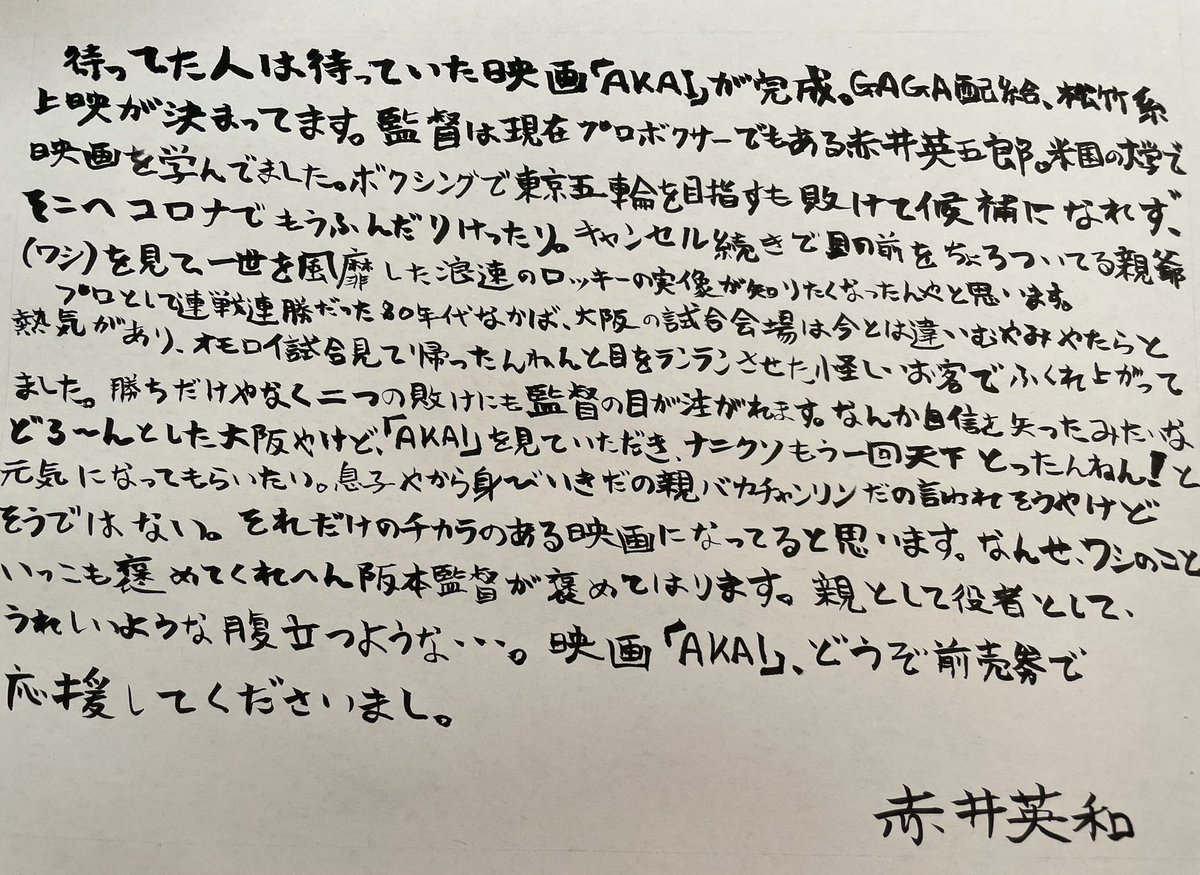 待ってた人は待っていた映画「AKAI」が完成。GAGA配給、松竹系
上映が決まってます。監督は現在プロボクサーでもある赤井英五郎。米国の大学で
映画を学んでました。ボクシングで東京五輪を目指すも敗けて候補になれず、
そこへコロナでもうふんだりけったり。キャンセル続きで目の前をちょろついてる親爺
(ワシ)を見て、一世を風靡した浪速のロッキーの実像が知りたくなったんやと思います。
プロとして連戦連勝だった80年代なかば、大阪の試合会場は今とは違いむやみやたらと
熱気があり、オモロイ試合見て帰ったんねんと目をランランさせた怪しいお客でふくれ上がって
ました。勝ちだけやなく二つの敗けにも監督の目が注がれます。なんか自信を失ったみたいな
どろ〜んとした大阪やけど、「AKAI」を見ていただき、ナニクソもう一回天下とったんねん!と
元気になってもらいたい。息子やから身びいきだの親バカチャンリンだの言われそうやけど
そうではない。それだけのチカラのある映画になってると思います。なんせ、ワシのこと
いっこも褒めてくれへん阪本監督が褒めてはります。親として役者として、
うれしいような腹立つような・・・。映画「AKAI」、どうぞ前売券で
応援してくださいまし。
赤井英和